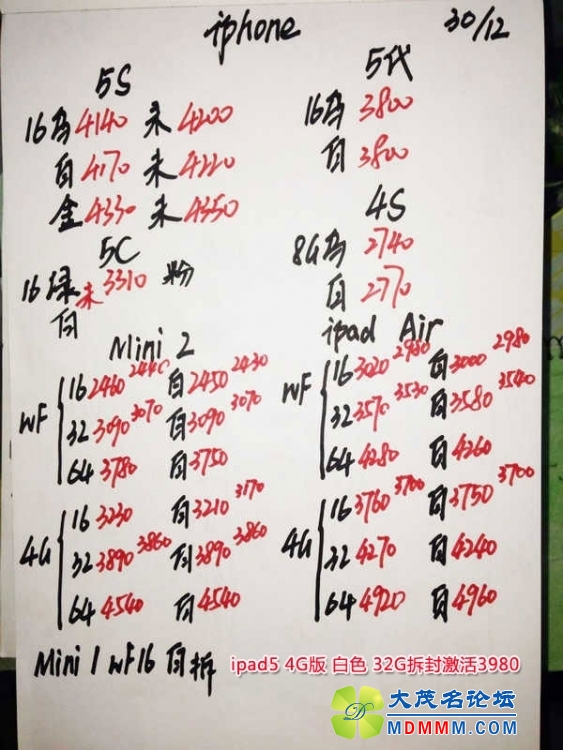 iphone 30/12
5S
16为4140 未4200
白4170 未4220
金4330 未4350
5C
16绿未3310 粉
白
5代
16为3800
白3800
4S
8G为2740
白2770
Mini 2
WF
16 2460 2440 白2450 2430
32 3090 3070 白3090 3070
64 3780 白3750
4G
16 3230 白3210 3170
32 3890 3860 白3890 3860
64 4540 白4540
ipad Air
WF
16 3020 2980 白3000 2980
32 3570 3530 白3580 3540
64 4280 白4260
4G
16 3760 3700 白3750 3700
32 4270 白4240
64 4920 白4960
Mini 1 WF16 白拆
ipad5 4G版 白色 32G拆封激活3980
大茂名论坛
MDMMM.COM